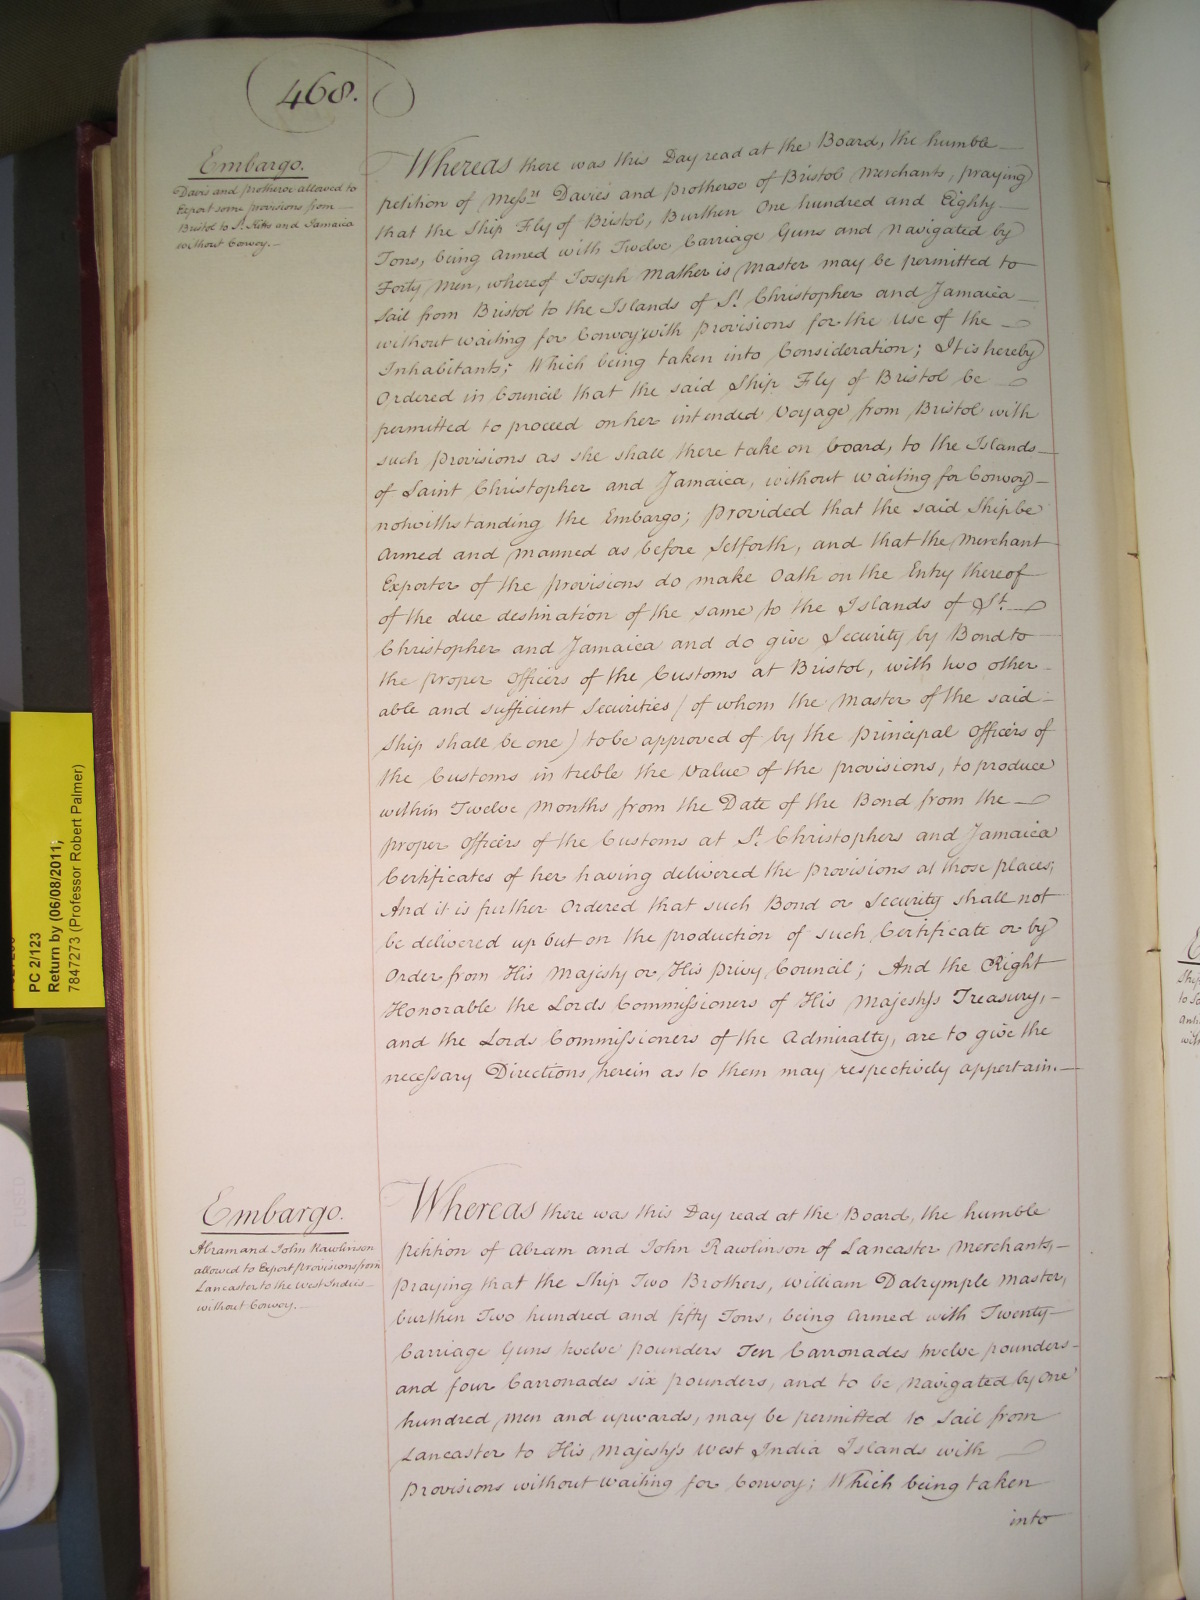 468.
Embargo.
Davis and protheroe allowed to
Export some provisions from
Bristol to St. Kitts and Jamaica
without Convoy.
Whereas there was this Day read at the Board, the humble
petition of Messrs Davies and protheroe of Bristol Merchants, praying
that the Ship Fly of Bristol, Burthen One hundred and Eighty
Tons, being armed with Twelve Carriage Guns and navigated by
Forty Men, whereof Joseph Mather is Master may be permitted to
sail from Bristol to the Islands of St. Christopher and Jamaica
without waiting for Convoy with provisions for the use of the
Inhabitants; Which being taken into Consideration; It is hereby
Ordered in Council that the said Ship Fly of Bristol be
permitted to proceed on her intended Voyage from Bristol with
such provisions as she shall there take on board, to the Islands
of Saint Christopher and Jamaica, without waiting for Convoy
notwithstanding the Embargo; provided that the said Ship be
Armed and Manned as before Setforth, and that the Merchant
Exporter of the provisions do make Oath on the Entry thereof
of the due destination of the same to the Islands of St.
Christopher and Jamaica and do give Security by Bond to
the proper Officers of the Customs at Bristol, with two other
able and sufficient Securities (of whom the Master of the said
Ship shall be one) to be approved of by the principal Officers of
the Customs in treble the Value of the provisions, to produce
within Twelve Months from the Date of the Bond from the
proper Officers of the Customs at St. Christophers and Jamaica
Certificates of her having delivered the provisions at those places;
And it is further Ordered that such Bond or Security shall not
be delivered up but on the production of such Certificate or by
Order from His Majesty or His privy Council; And the Right
Honorable the Lords Commissioners of His Majesty's Treasury,
and the Lords Commissioners of the Admiralty, are to give the
necessary Directions herein as to them may respectively appertain.
Embargo.
Abram and John Rawlinson
allowed to Export provisions from
Lancaster to the West Indies
without Convoy.
Whereas there was this Day read at the Board, the humble
petition of Abram and John Rawlinson of Lancaster Merchants,
praying that the Ship Two Brothers, William Dalrymple Master,
burthen Two hundred and fifty Tons, being armed with Twenty
Carriage Guns twelve pounders Ten Carronades twelve pounders
and four Carronades six pounders, and to be navigated by One
hundred Men and upwards, may be permitted to Sail from
Lancaster to His Majesty's West India Islands with
provisions without waiting for Convoy; Which being taken
into
PC 2/123
Return by (06/08/2011;
7847273 (Professor Robert Palmer)